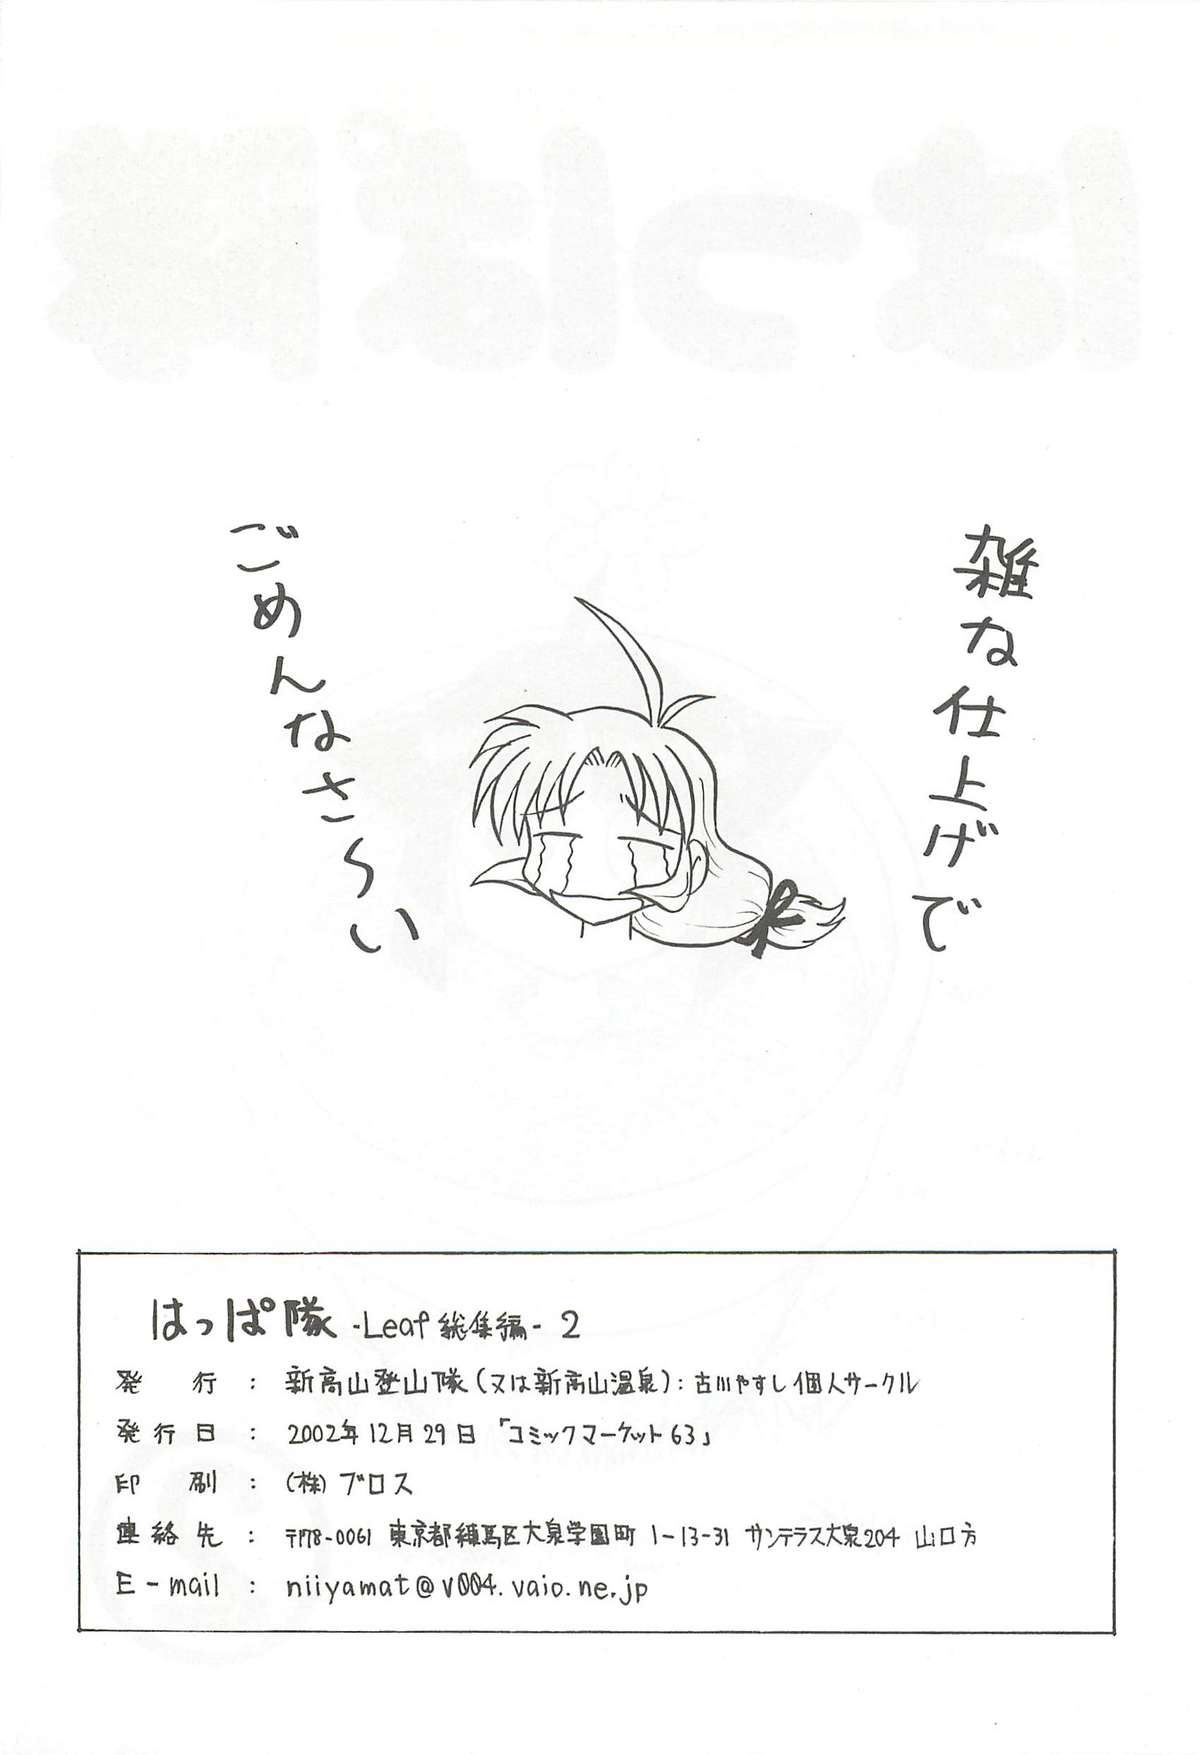 雑な仕上げで
ごめんなさ〜い
はっぱ隊 -Leaf総集編- 2
発行 : 新高山登山隊(又は新高山温泉):古川やすし個人サークル
発行日 : 2002年12月29日 「コミックマーケット63」
印刷 : (株)ブロス
連絡先 : 〒178-0061 東京都練馬区大泉学園町 1-13-31 サンテラス大泉204 山口方
E-mail : niiyamat@v004.vaio.ne.jp